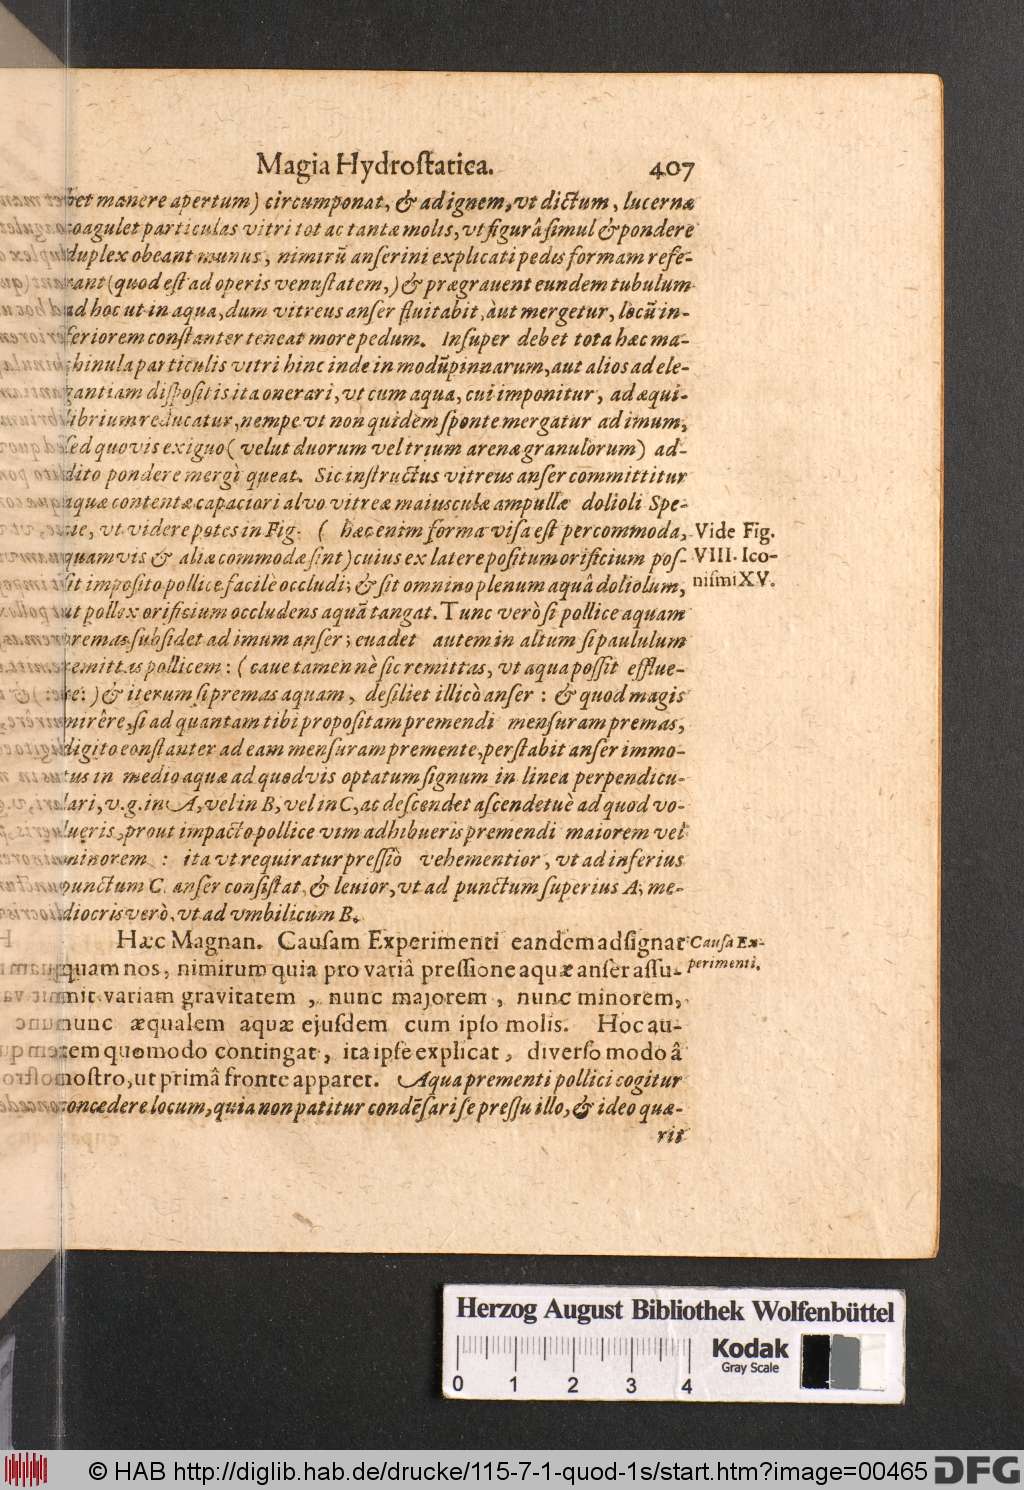 Magia Hydroſtatica. 407
bet manere apertum) circumponat, & ad ignem, vt dictum, lucernæ
coagulet particulas vitri tot ac tantæ molis, vt figurâ ſimul & pondere
duplex obeant munus, nimirũ anſerini explicati pedis formam refe-
rant (quod eſt ad operis venuſtatem,) & prægrauent eundem tubulum
ad hoc ut in aqua, dum vitreus anſer fluitabit, àut mergetur, locũ in-
feriorem conſtanter teneat more pedum. Inſuper debet tota hæc ma-
chinula particulis vitri hinc inde in modũ pinnarum, aut alios ad ele-
gantiam diſpoſitis ita onerari, vt cum aqua, cui imponitur, ad æqui-
librium reducatur, nempe vt non quidem ſponte mergatur ad imum,
ſed quovis exiguo (velut duorum vel trium arenæ granulorum) ad-
dito pondere mergì queat. Sic inſtructus vitreus anſer committitur
aquæ contentæ capaciori alvo vitreæ maiusculæ ampullæ dolioli Spe-
cie, vt videre potes in Fig. ( hæc enim forma viſa eſt percommoda,
Vide Fig.
VIII. Ico-
niſmi XV.
quamvis & aliæ commodæ ſint) cuius ex latere poſitum orificium poſ-
ſit impoſito pollice facilè occludi; & ſit omnino plenum aquâ doliolum,
ut pollex orificium occludens aquã tangat. Tunc verò ſi pollice aquam
premas, ſubſidet ad imum anſer; euadet autem in altum ſi paululum
remittas pollicem: (caue tamen nè ſic remittas, vt aqua poſſit efflue-
re:) & iterum ſi premas aquam, deſiliet illicò anſer: & quod magis
mirêre, ſi ad quantam tibi propoſitam premendi menſuram premas,
digito conſtanter ad eam menſuram premente, perſtabit anſer immo-
tus in medio aquæ ad quodvis optatum ſignum in linea perpendicu-
lari, v.g. in A, vel in B, vel in C, ac deſcendet aſcendetuè ad quod vo-
lueris, prout impacto pollice vim adhibueris premendi maiorem vel
minorem: ita vt requiratur preſſiò vehementior, vt ad inferius
punctum C. anſer conſiſtat, & leuior, vt ad punctum ſuperius A; me-
diocris verò, vt ad vmbilicum B.
Hæc Magnan. Cauſam Experimenti eandem adſignat
Cauſa Ex-
perimenti.
quam nos, nimirum quia pro variâ preſſione aquæ anſer aſſu-
mit variam gravitatem, nunc majorem, nunc minorem,
nunc æqualem aquæ ejuſdem cum ipſo molis. Hoc au-
tem quomodo contingat, ita ipſe explicat, diverſo modo â
noſtro, ut primâ fronte apparet. Aqua prementi pollici cogitur
concedere locum, quia non patitur condẽſari ſe preſſu illo, & ideo quæ-
rit
Herzog August Bibliothek Wolfenbüttel
0 1 2 3 4
Kodak
Gray Scale
© HAB http://diglib.hab.de/drucke/115-7-1-quod-1s/start.htm?image=00465
DFG